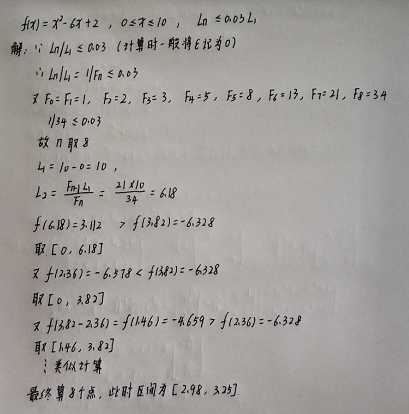 f(x)=x²-6x+2 , 0≤x≤10 , Ln≤0.03L₁
解: ∵ Ln/L₁≤0.03 (计算时一般将ε记为0)
∴ Ln/L₁=1/Fn≤0.03
又 F₀=F₁=1, F₂=2, F₃=3, F₄=5, F₅=8, F₆=13, F₇=21, F₈=34
1/34≤0.03
故 n 取 8
L₁=10-0=10,
L₂= Fn-1L₁/Fn = 21×10/34 = 6.18
f(6.18)=3.112 > f(3.82)=-6.328
取 [0, 6.18]
又 f(2.36)=-6.578 < f(3.82)=-6.328
取 [0, 3.82]
又 f(3.82-2.36)=f(1.46)=-4.659 > f(2.36)=-6.328
取 [1.46, 3.82]
⋮ 类似计算
最终算8个点, 此时区间为 [2.98, 3.25]